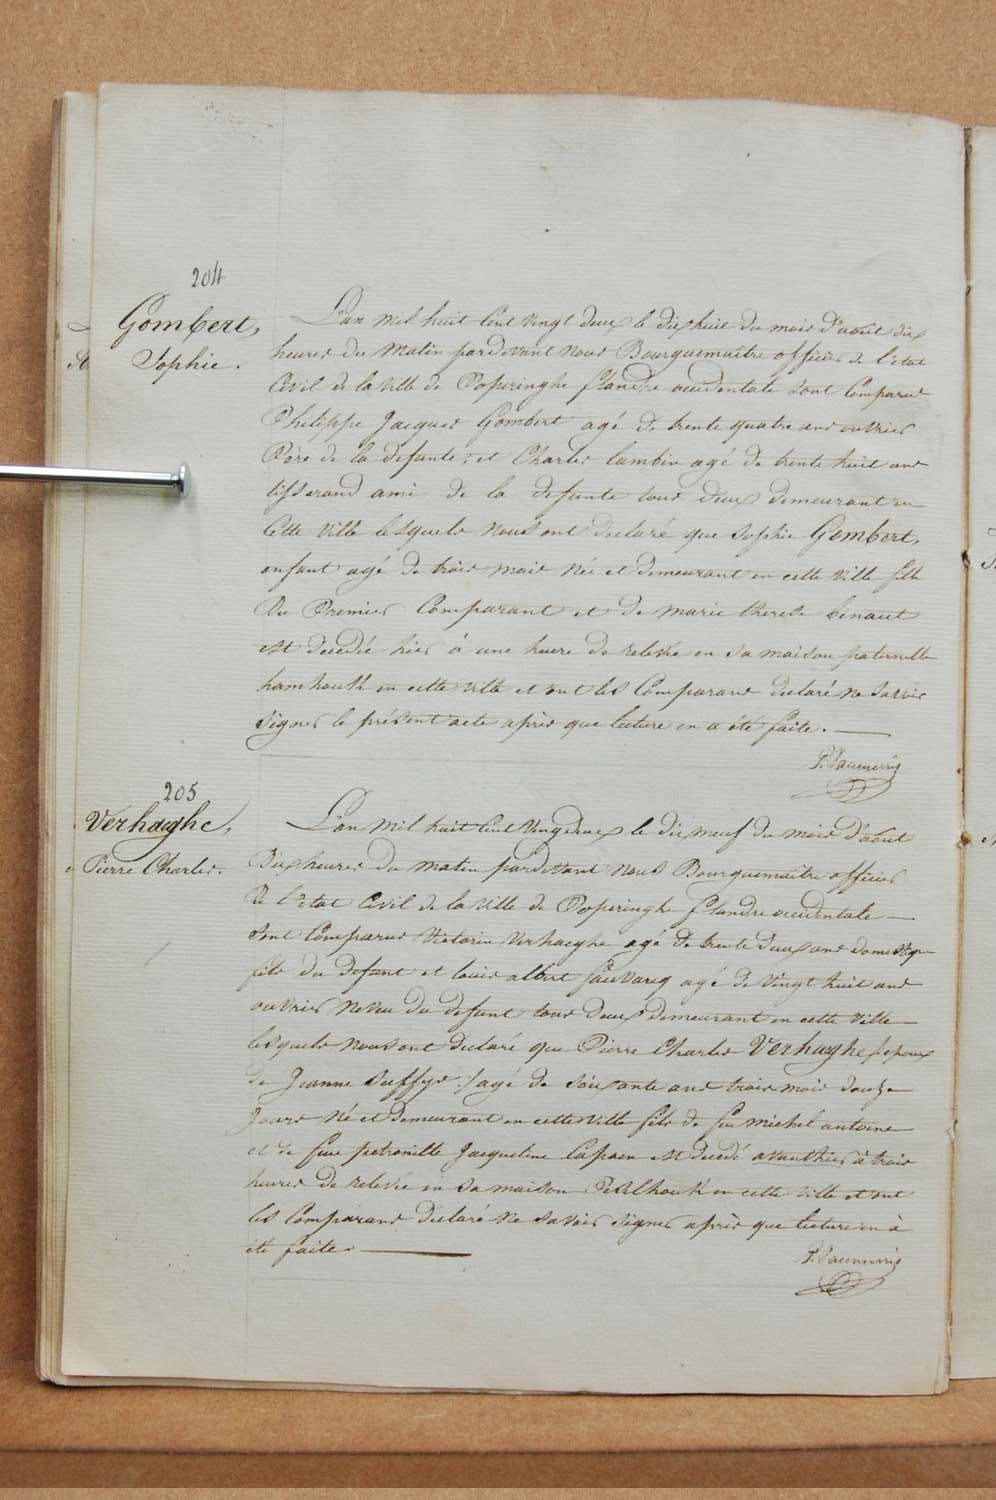 204
Gombert,
Sophie.
L'an mil huit Cent vingt deux le dix huit du mois d'août dix
heures du Matin pardevant nous Bourguemaitre officier de l'état
Civil de la ville de Poperinghe flandre occidentale sont Comparus
Philippe Jacques Gombert agé de trente quatre ans ouvrier
Père de la defunte, et Charles lambin agé de trente huit ans
tisserand ami de la defunte tous deux demeurant en
Cette ville lesquels nous ont declaré que Sophie Gombert,
enfant agé de trois mois née et demeurant en cette ville fille
du Premier Comparant et de marie therese
est decedée hier à une heure de relevée en sa maison paternelle
hamhouk en cette ville et ont les Comparans declaré ne savoir
signer le présent acte après que lecture en a été faite.
205
Verhaeghe,
Pierre Charles.
L'an mil huit Cent vingt deux le dix neuf du mois d'août
Dix heures du matin pardevant nous Bourguemaitre officier
de l'état Civil de la ville de Poperinghe flandre occidentale
sont Comparus Victorin Verhaeghe agé de trente deux ans domestiq
fils du defunt et louis albert agé de vingt huit ans
ouvrier neveu du defunt tous deux demeurant en cette ville
lesquels nous ont declaré que Pierre Charles Verhaeghe epoux
de Jeanne agé de soixante ans trois mois douze
Jours né et demeurant en cette ville fils de feu michel antoine
et de feue petronille Jacqueline Capoen est decedé avanthier à trois
heures de relevée en sa maison Peselhouk en cette ville et ont
les Comparans déclaré ne savoir signer après que lecture en à
été faite.